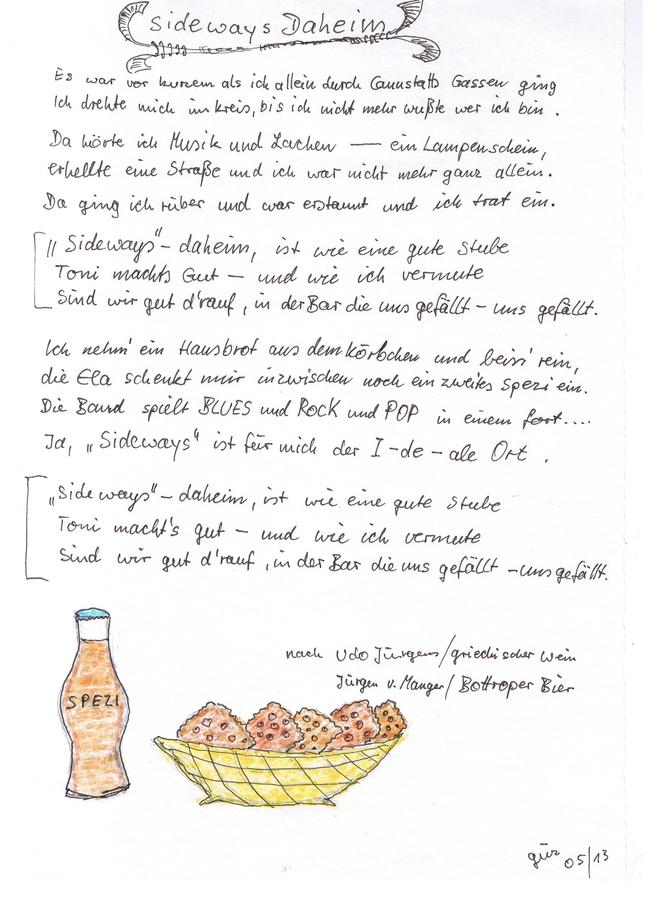 Sideways Daheim
Es war vor kurzem als ich allein durch Cannstatts Gassen ging
Ich drehte mich im kreis, bis ich nicht mehr wußte wer ich bin.
Da hörte ich Musik und Lachen — ein Lampenschein,
erhellte eine Straße und ich war nicht mehr ganz allein.
Da ging ich rüber und war erstaunt und ich trat ein.
"Sideways"-daheim, ist wie eine gute Stube
Toni machts Gut – und wie ich vermute
Sind wir gut d'rauf, in der Bar die uns gefällt – uns gefällt.
Ich nehm' ein Hausbrot aus dem Körbchen und beiss' rein,
die Ela schenkt mir inzwischen noch ein zweites Spezi ein.
Die Band spielt BLUES und ROCK und POP in einem fort....
Ja, „Sideways" ist für mich der I-de-ale Ort.
„Sideways"-daheim, ist wie eine gute Stube
Toni macht's gut – und wie ich vermute
Sind wir gut d'rauf, in der Bar die uns gefällt – uns gefällt.
nach Udo Jürgens/griechischer Wein
Jürgen v. Manger/Bottroper Bier
SPEZI
gür 05/13